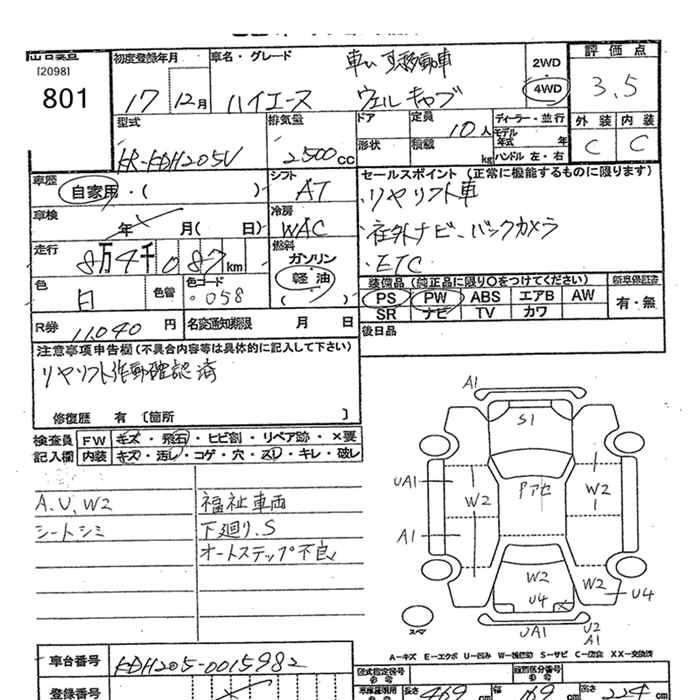 出品票
[2098]
801
初度登録年月
17 12月
車名・グレード
車いす移動車
ハイエース ウェルキャブ
2WD
4WD
評価点
3.5
外装 内装
C C
型式
KR-KDH205V
排気量
2500cc
ドア
形状
定員
10人
積載
kg
ディーラー・並行
モデル
年式 年
ハンドル 左・右
車歴
自家用・( )
シフト
AT
セールスポイント (正常に機能するものに限ります)
・リヤリフト車
・社外ナビ、バックカメラ
・ETC
車検
年 月( 日)
冷房
WAC
走行
8万4千087km
燃料
ガソリン
軽油
色
白
色替
色コード
058
装備品 (純正品に限り〇をつけてください)
新車保証書
PS PW ABS エアB AW
SR ナビ TV カワ
有・無
R券
11,040円
名変通知期限 月 日
後日品
注意事項申告欄 (不具合内容等は具体的に記入して下さい)
リヤリフト作動確認済
修復歴 有 [箇所 ]
検査員 FW キズ・飛石・ヒビ割・リペア跡・×要
記入欄 内装 キズ・汚レ・コゲ・穴・スレ・キレ・破レ
A.U.W2
シートシミ
福祉車両
下廻り.S
オートステップ不良
A1
S1
UA1
W2
Pアセ
W2
A1
W2
U4
W2
U4
UA1
U2
A1
スペア
A-キズ E-エクボ U-凹み W-補修跡 S-サビ C-腐食 XX-交換済
車台番号
KDH205-0015982
登録番号
型式指定番号
類別区分番号
長さ 469cm 幅 169cm 高さ 224cm